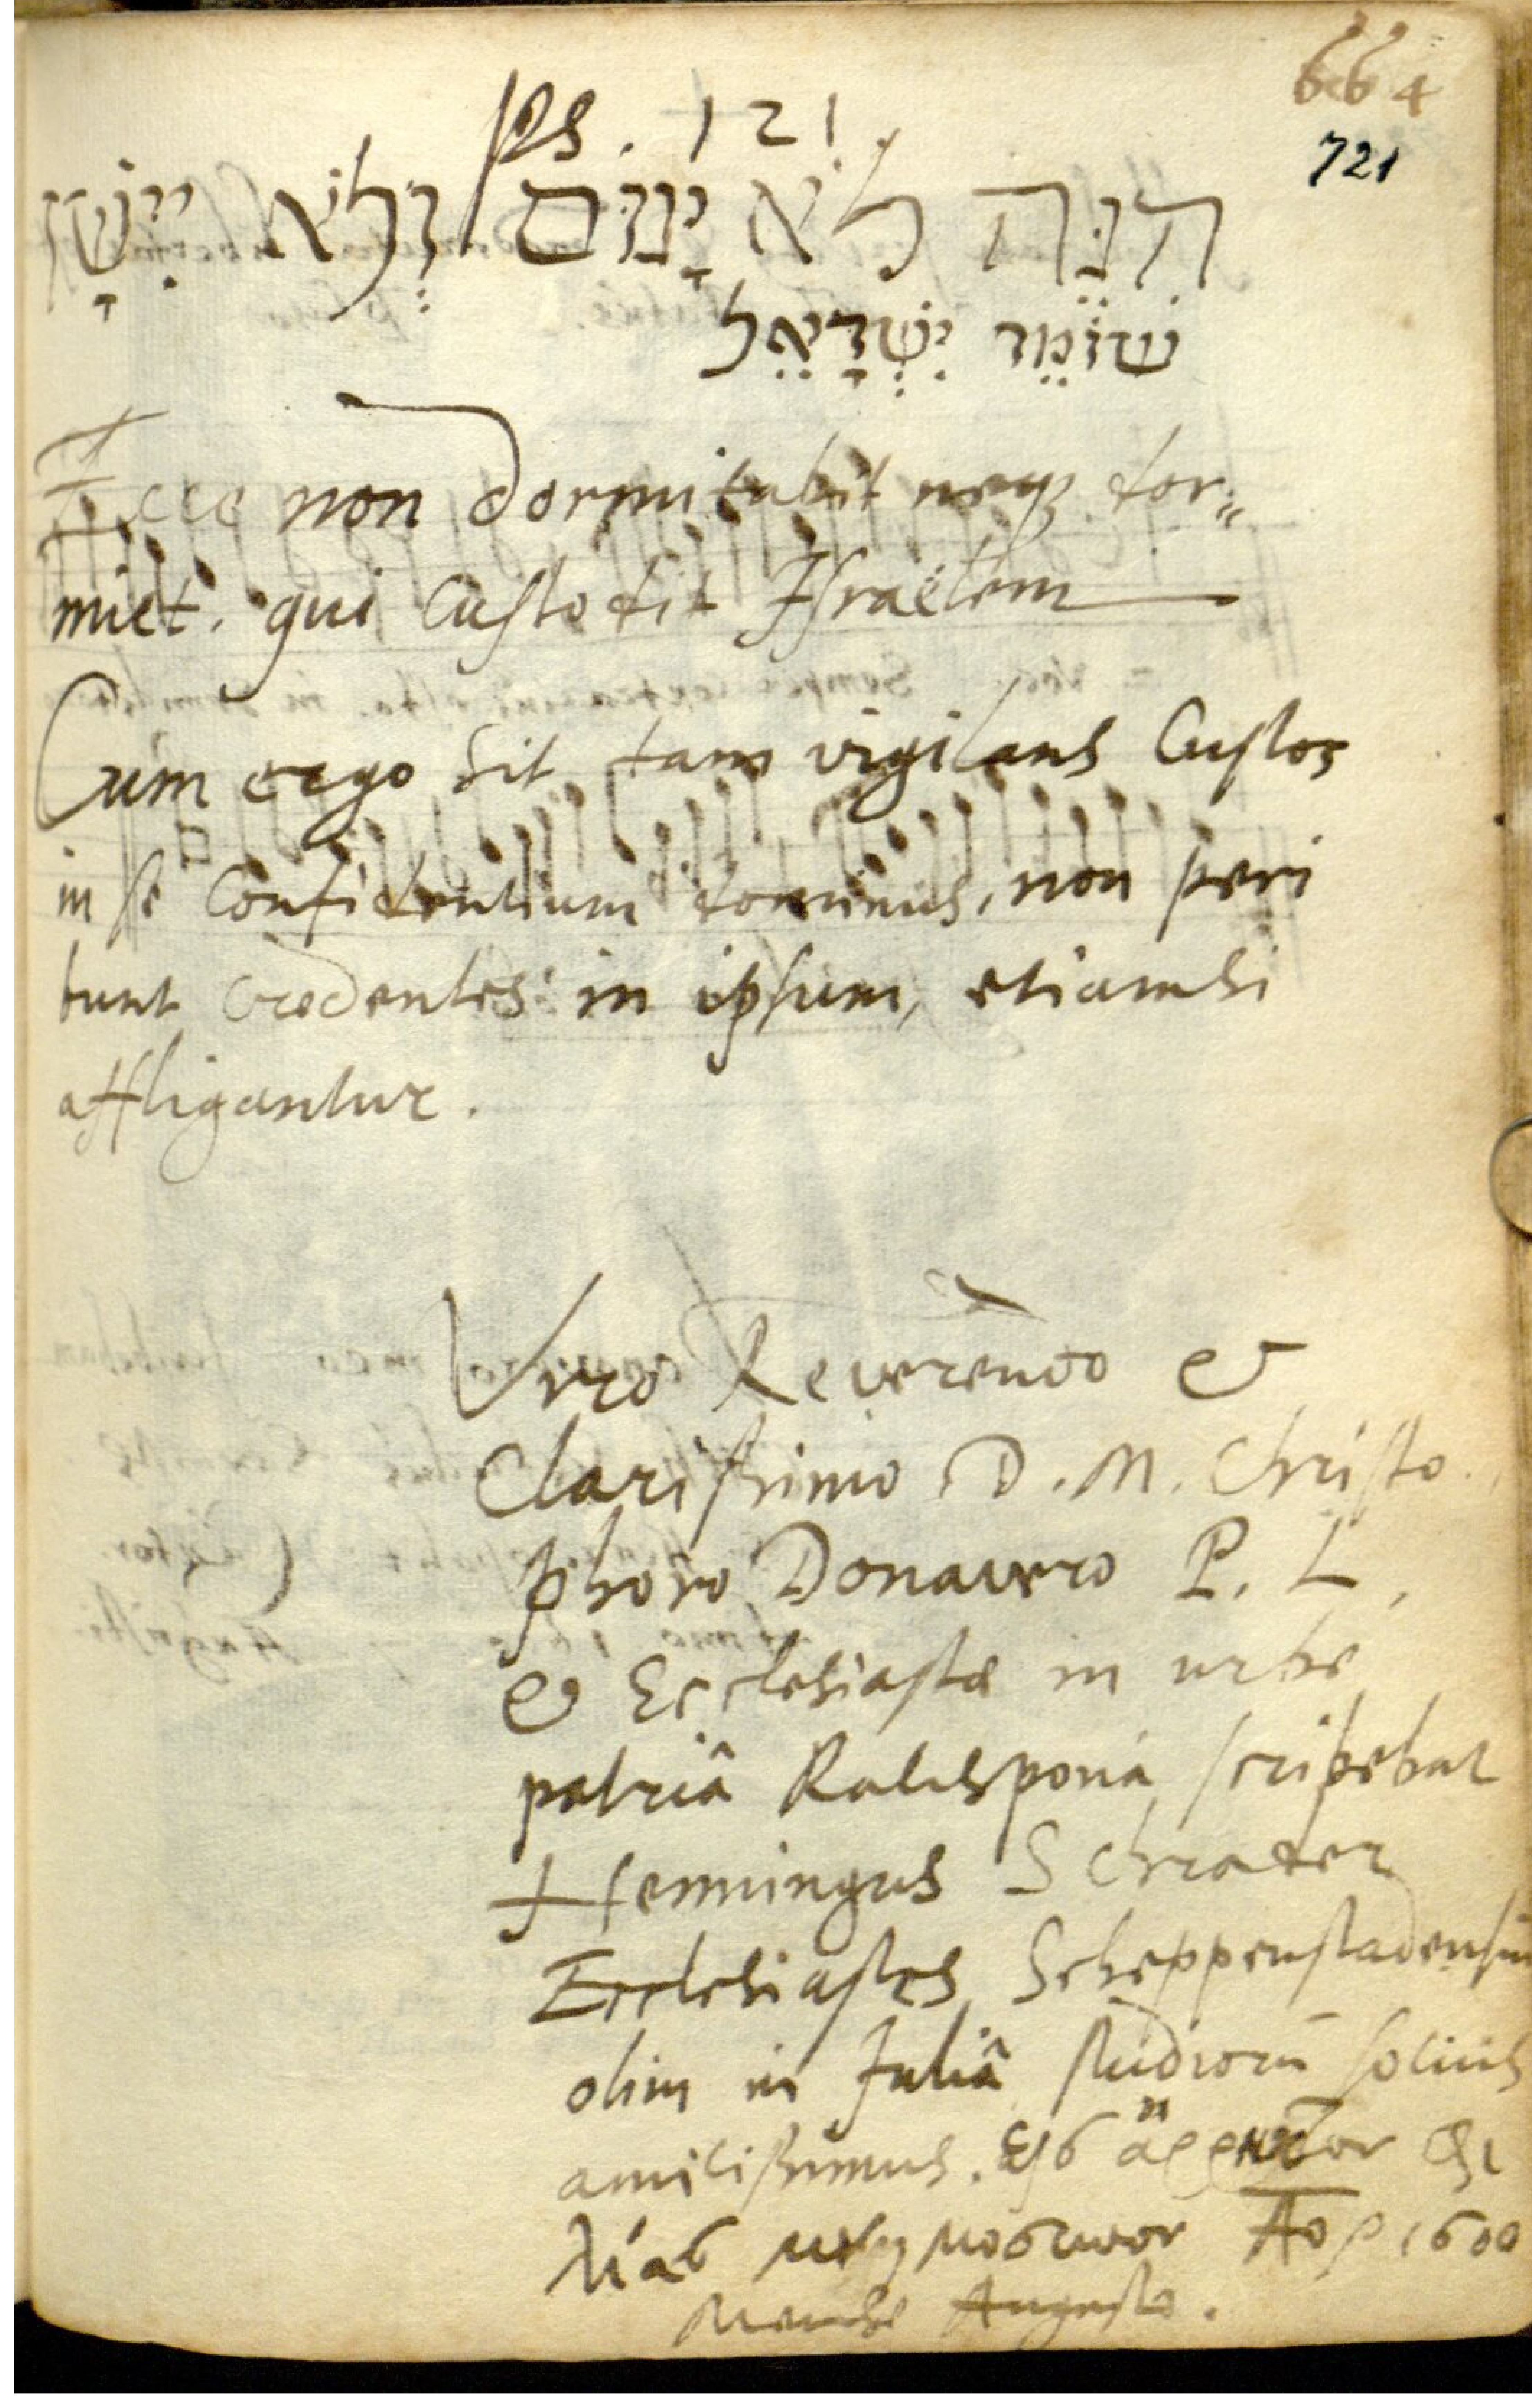 664
721
Ps. 121.
הִנֵּה לֹא יָנוּם וְלֹא יִישָׁן
שׁוֹמֵר יִשְׂרָאֵל
Ecce non dormitabit neq3 dor„
miet. qui Custodit Israëlem
Cum ergo sit tam vigilans Custos
in se Confidentium dominus, non peri
bunt credentes in ipsum, etiamsi
affligantur.
Viro Reverendo &
Clarissimo D. M. Christo
phoro Donavero P. L.
& Ecclesiastæ in urbe
patriâ Ratisponâ scribebat
Henningus Schrader
Ecclesiastes Scheppenstadensium
olim in Juliâ studiorū socius
amicissimus. εἰς ἄρρηκτον φι
λίας μνημόσυνον Aō 1600
Mense Augusto.